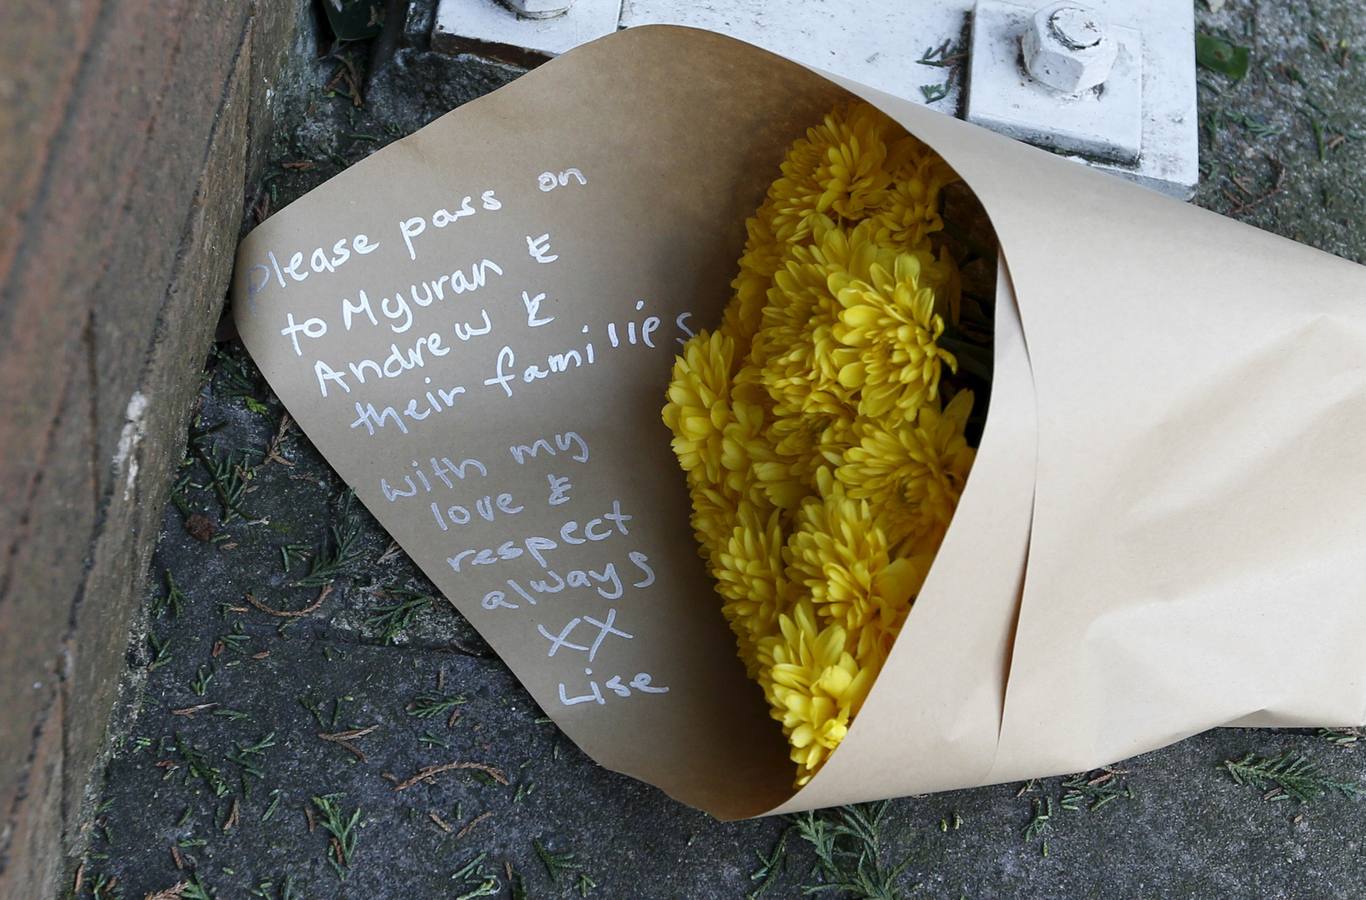 please pass on
to Myuran &
Andrew &
their families
with my
love &
respect
always
XX
Lise